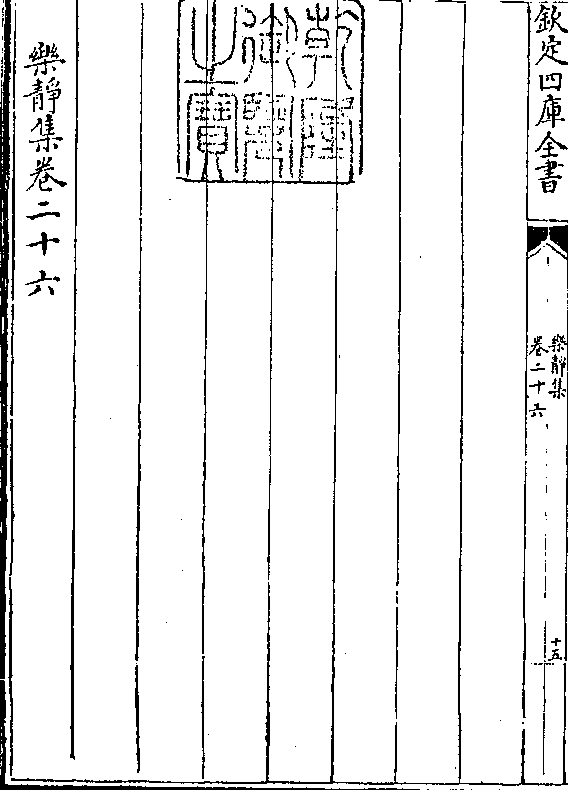 欽定四庫全書
樂靜集
卷二十六
十五
乾隆御覽之寶
樂静集卷二十六